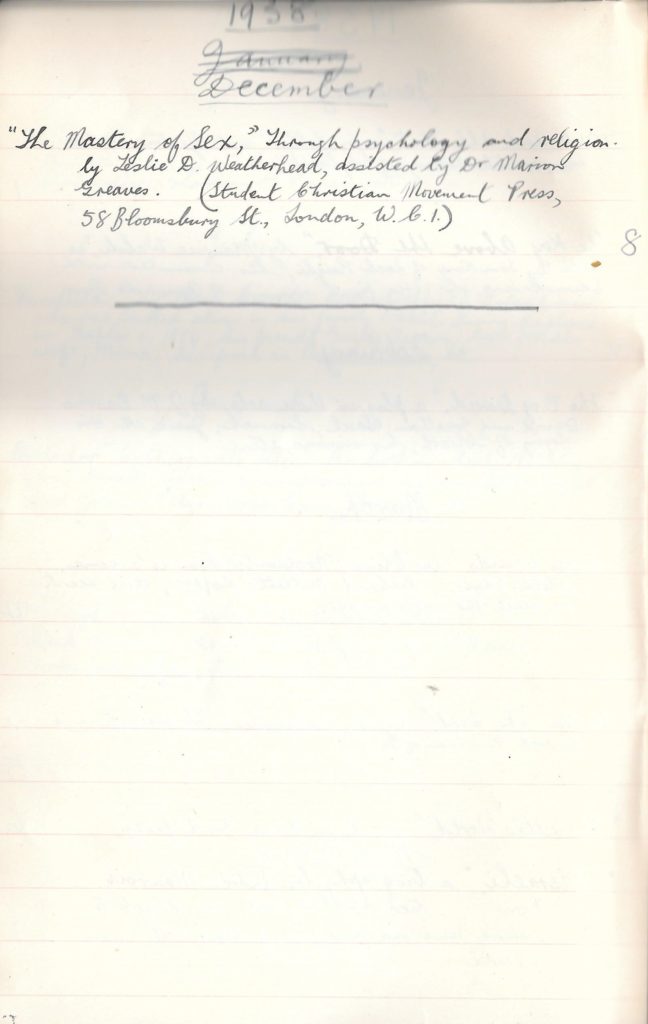 1938
January
December
"The Mastery of Sex," Through psychology and religion.
by Leslie D. Weatherhead, assisted by Dr Marion
Greaves. (Student Christian Movement Press,
58 Bloomsbury St., London, W.C.1.)
8